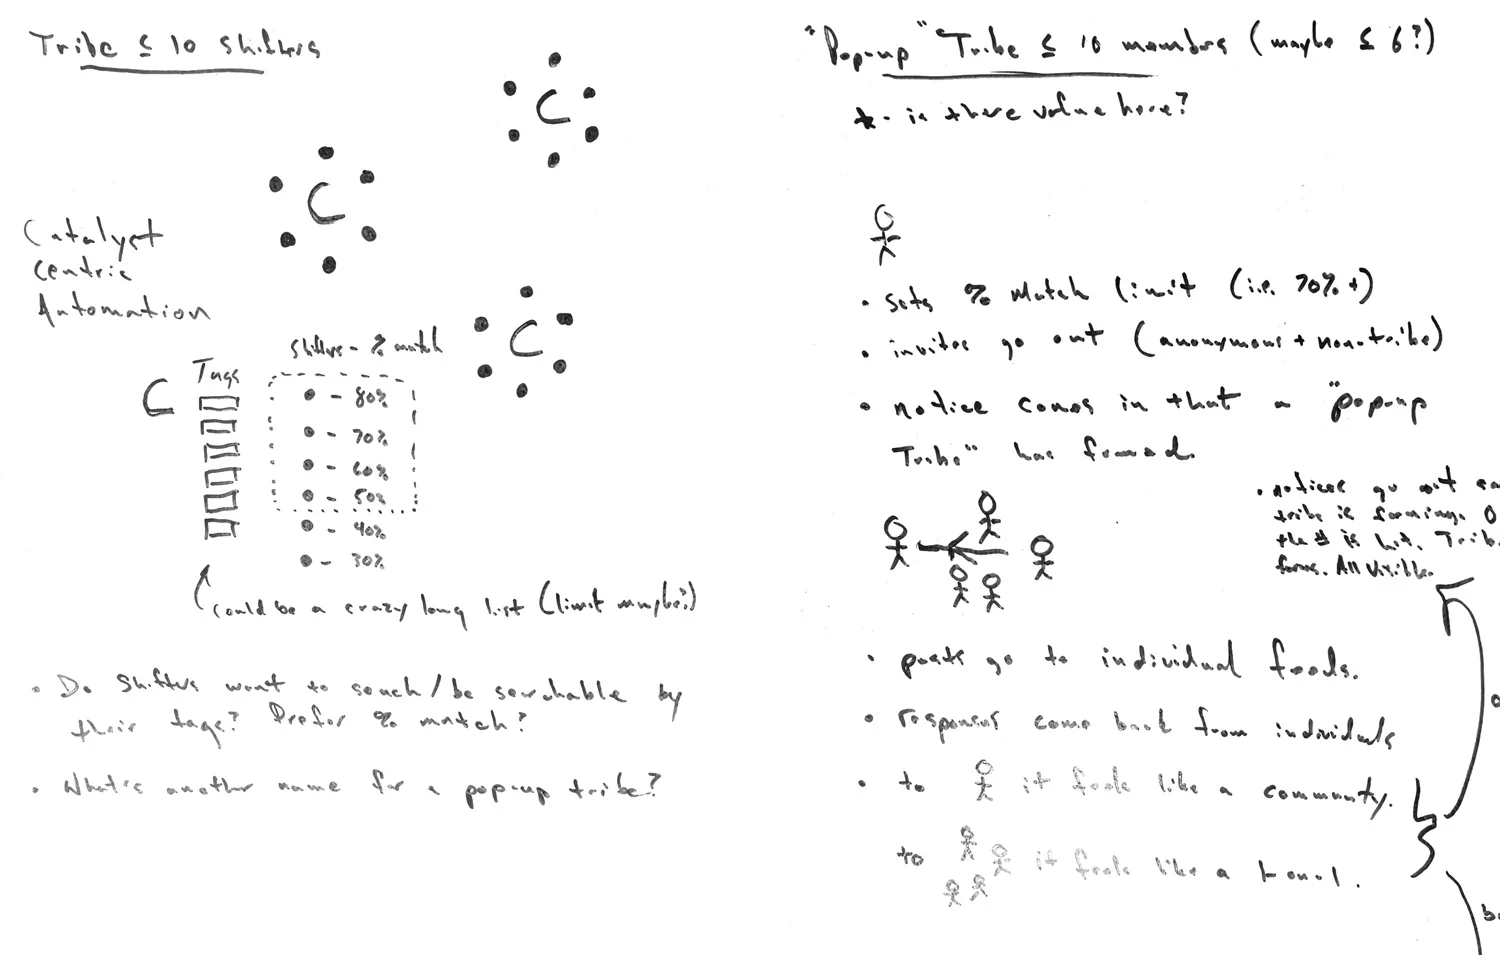 Tribe ≤ 10 Shifters
C
C
Catalyst
Centric
Automation
C
Shifters - % match
Tags
C
- 80%
- 70%
- 60%
- 50%
- 40%
- 30%
could be a crazy long list (limit maybe?)
• Do Shifters want to seach/be searchable by
their tags? Prefer % match?
• What's another name for a pop-up tribe?
"Pop-up" Tribe ≤ 10 members (maybe ≤ 6?)
* - is there value here?
• sets % Match limit (i.e. 70%+)
• invites go out (anonymous + non-tribe)
• notice comes in that a "pop-up
Tribe" has formed.
• notices go out
tribe is forming. O
the # is hit. Trib
forms. All Visible.
• posts go to individual feeds.
• responses come back from individuals
• to it feels like a community.
to it feels like a